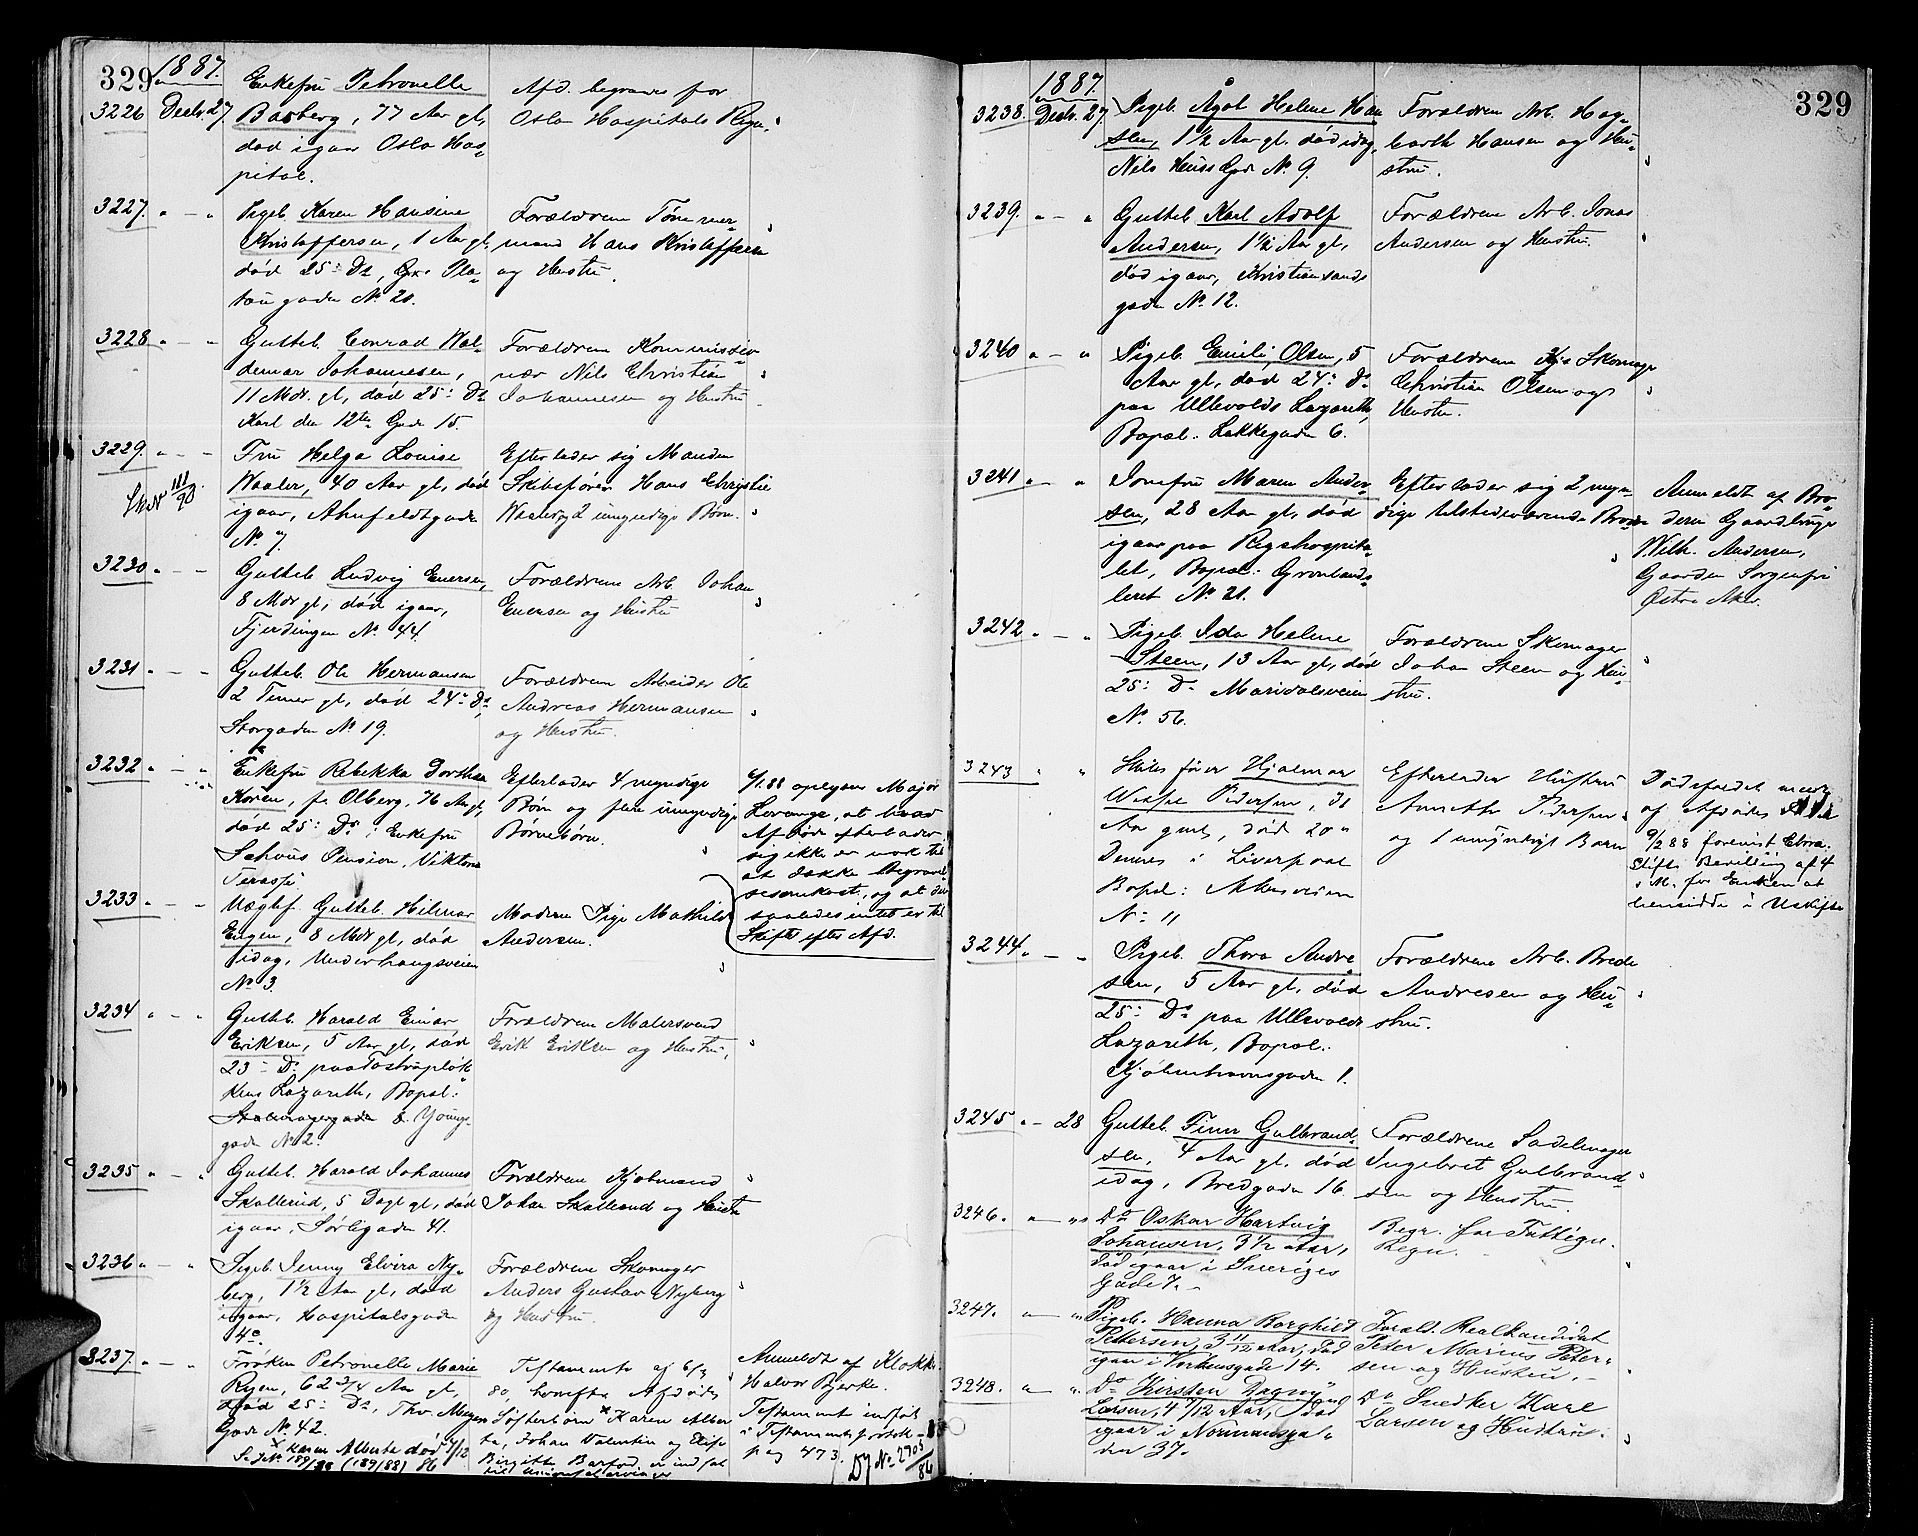 329 1887.
3226 Decbr. 27 Enkefru Petronelle
Basberg, 77 Aar gl,
død igaar Oslo Hos-
pital.
Afd. begraves for
Oslo Hospitals Regn.
3227. " - " Pigeb. Karen Hansine
Kristoffersen, 1 Aar gl,
død 25: Ds,
gade No 20.
Forældrene Tømmer-
mand Hans Kristoffersen
og Hustru.
3228 " - " Gutteb. Conrad Wal-
demar Johannesen,
11 Mdr. gl, død 25: Ds
Karl den 12tes Gade 15.
Forældrene Kommissio-
nær Nils Christian
Johannesen og Hustru.
3229. " - " Fru Helga Louise
Waaler, 40 Aar gl, død
igaar, Ahnfeldtgade
No 7.
Efterlader sig Manden
Skibsfører Hans Christie
Waaler og 2 umyndige Børn.
3230 " - " Gutteb. Ludvig Enersen,
8 Mdr gl, død igaar,
Fjerdingen No 44.
Forældrene Arb. Johan
Enersen og Hustru
3231 " - " Gutteb. Ole Hermansen
2 Timer gl, død 24: Ds,
Storgaden No 19.
Forældrene Arbeider Ole
Andreas Hermansen
og Hustru.
3232 " - " Enkefru Rebekka Dorthea
Koren, f. Olberg, 76 Aar gl,
død 25: Ds i Enkefru
Schous Pension, Viktoria
Terasse.
Efterlader 4 myndige
Børn og flere umyndige
Børnebørn.
6/1.88 oplyser Major
Lorange, at hvad
Afdøde efterlader
sig ikke er nok til
at dække Begravel-
sesomkost., og at der
saaledes intet er til
Skifte efter Afd.
3233 " - " Uægtef. Gutteb. Hilmar
Eugen, 8 Mdr gl, død
idag, Underhaugsveien
No 3.
Moderen Pige Mathilde
Andersen.
3234 " - " Gutteb. Harald Einar
Eriksen, 5 Aar gl, død
23: Ds paa Tostrupløk-
kens Lazareth, Bopæl:
Youngs-
gade No 2.
Forældrene Malersvend
Erik Eriksen og Hustru,
3235 " - " Gutteb. Harald Johannes
Skallerud, 5 Dage gl, død
igaar, Sørligaden 41.
Forældrene Kjøbmand
Johan Skallerud og Hustru
3236 " - " Pigeb. Jenny Elvira Ny-
berg, 1 1/2 Aar gl, død
igaar, Hospitalsgaden
4c.
Forældrene Skomager
Anders Gustav Nyberg
og Hustru.
3237. " - " Frøken Petronelle Marie
Ryen, 62 3/4 Aar gl,
død 25: Ds, Thv. Meyers
Gade No 42.
x Karen Alberta død 4/12
86
Testamente af 6/3
80, hvorefter Afdødes
Søsterbørn x Karen Alber-
ta, Johan Valentin og Elise
Birgitte Barfod er indsat
til Universalarvinger
Anmeldt af Klokker
Halvor Bjerke.
Testament indført
i Testamentsprotok-
pag 473.
DJ No 2903/86
1887. 329
3238. Decbr. 27. Pigeb. Agot Helene Han-
sen, 1 1/2 Aar gl. død idag,
Nils Huus Gade No 9.
Forældrene Arb. Hag-
barth Hansen og Hu-
stru.
3239. " - " Gutteb. Karl Adolf
Andersen, 1 1/2 Aar gl,
død igaar, Kristiansands
gade No 12.
Forældrene Arb. Jonas
Andersen og Hustru.
3240 " - " Pigeb. Emilie Olsen, 5
Aar gl, død 24: Ds
paa Ullevolds Lazareth,
Bopæl: Lakkegaden 6.
Forældrene Skomager
Christian Olsen og
Hustru.
3241 " - " Jomfru Maren Ander-
sen, 28 Aar gl, død
igaar paa Rigshospita-
let, Bopæl: Grønlands-
leret No 21.
Efterlader sig 2 myn-
dige tilstedeværende Brødre
Anmeldt af Bro-
deren Gaardbruger
Wilh. Andersen,
Gaarden Sorgenfri
Østre Aker.
3242 " - " Pigeb. Ida Helene
Steen, 13 Aar gl, død
25: Ds Maridalsveien
No 56.
Forældrene Skomager
Johan Steen og Hu-
stru.
3243 " " Skibsfører Hjalmar
Pedersen, 31
Aar gml, død 20de
Dennes i Liverpool
Bopæl: Akersveien
No 11
Efterlader Hustru
Annette Pedersen
og 1 umyndigt Barn
Dødsfaldet anmeldt
af Afdødes
9/2 88 forevist Chra.
Stifts Bevilling af 4
d. M. for Enken at
hensidde i Uskifte
3244. " - " Pigeb. Thora Andre-
sen, 5 Aar gl, død
25: Ds paa Ullevolds
Lazareth, Bopæl:
Kjøbenhavnsgaden 1.
Forældrene Arb. Brede
Andresen og Hu-
stru.
3245 " - 28 Gutteb. Finn Gulbrand-
sen, 4 Aar gl, død
idag, Bredgaden 16.
Forældrene Sadelmager
Ingebret Gulbrand-
sen og Hustru.
3246. " - " Do Oskar Hartvig
Johansen, 3 1/2 Aar,
død igaar i Sveriges
Gade 7.
Begr. for Fattigv.
Regn.
3247. " - " Pigeb. Hanna Borghild
Pettersen, 3 11/12 Aar, død
igaar i Vørhusgade 14.
Foræld. Realkandidat
Peter Marius Peter-
sen og Hustru.
3248. " - " Do Kirsten Dagny
Larsen, 4 7/12 Aar, død
igaar i Normansga-
den 37.
Do Snedker Karl
Larsen og Hustru.
329